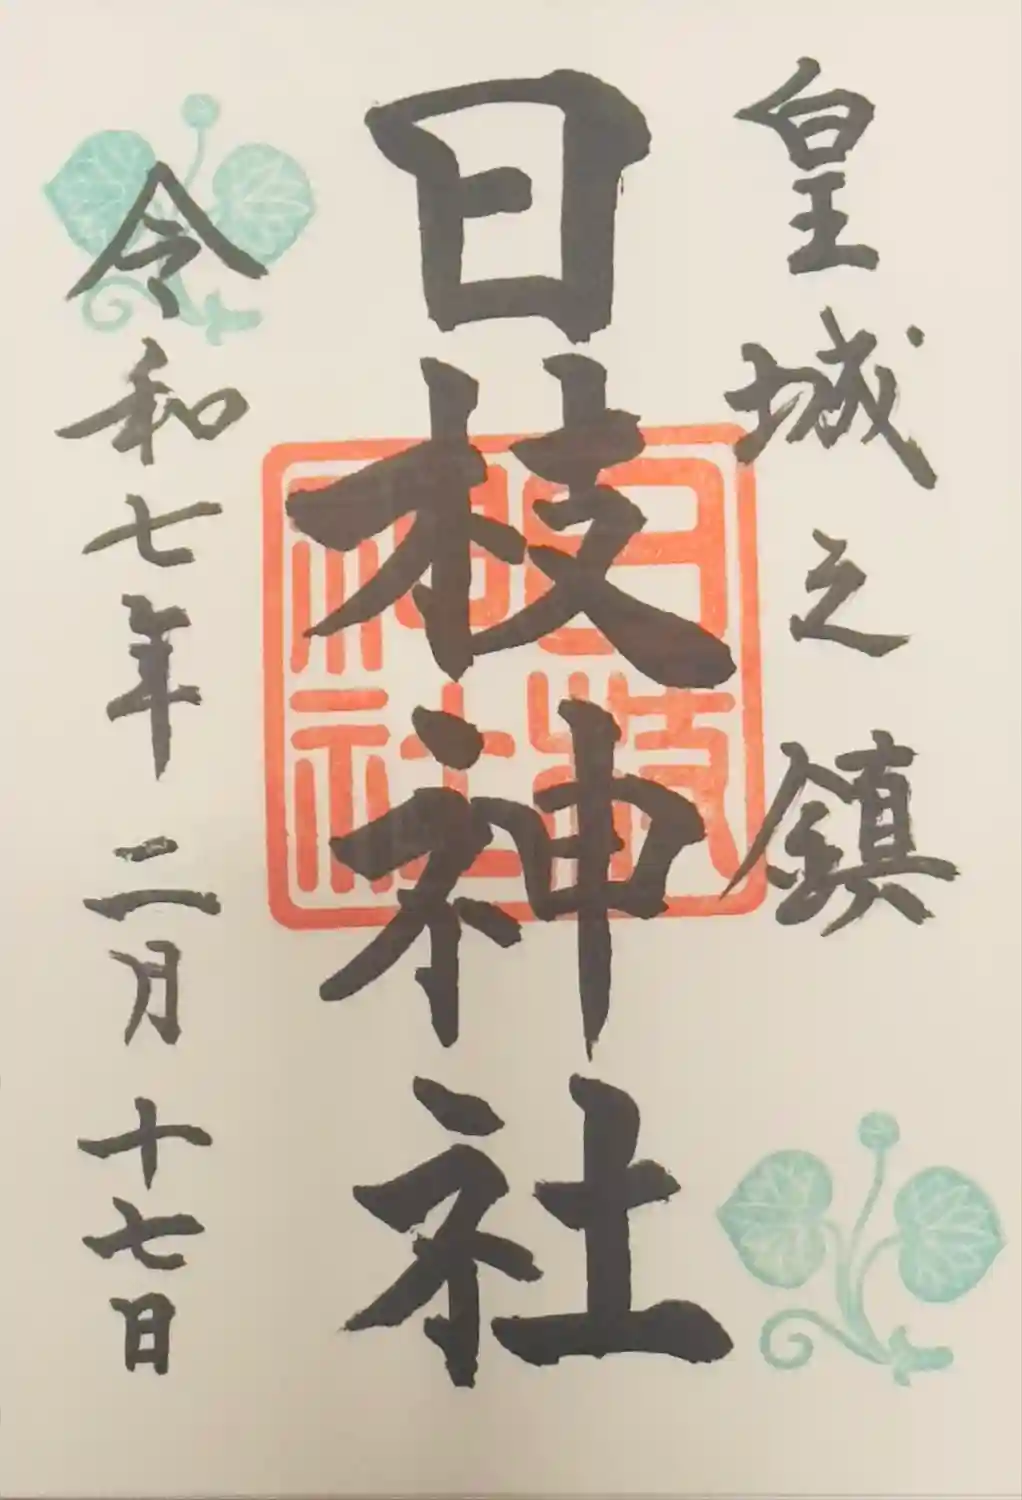 皇城之鎮
日枝神社
令和七年二月十七日
日枝神社